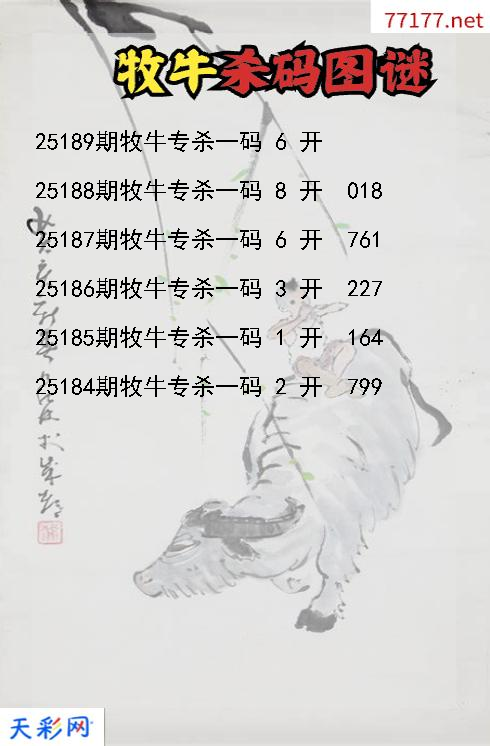 77177.net
牧牛杀码图谜
25189期牧牛专杀一码 6 开
25188期牧牛专杀一码 8 开 018
25187期牧牛专杀一码 6 开 761
25186期牧牛专杀一码 3 开 227
25185期牧牛专杀一码 1 开 164
25184期牧牛专杀一码 2 开 799
天彩网